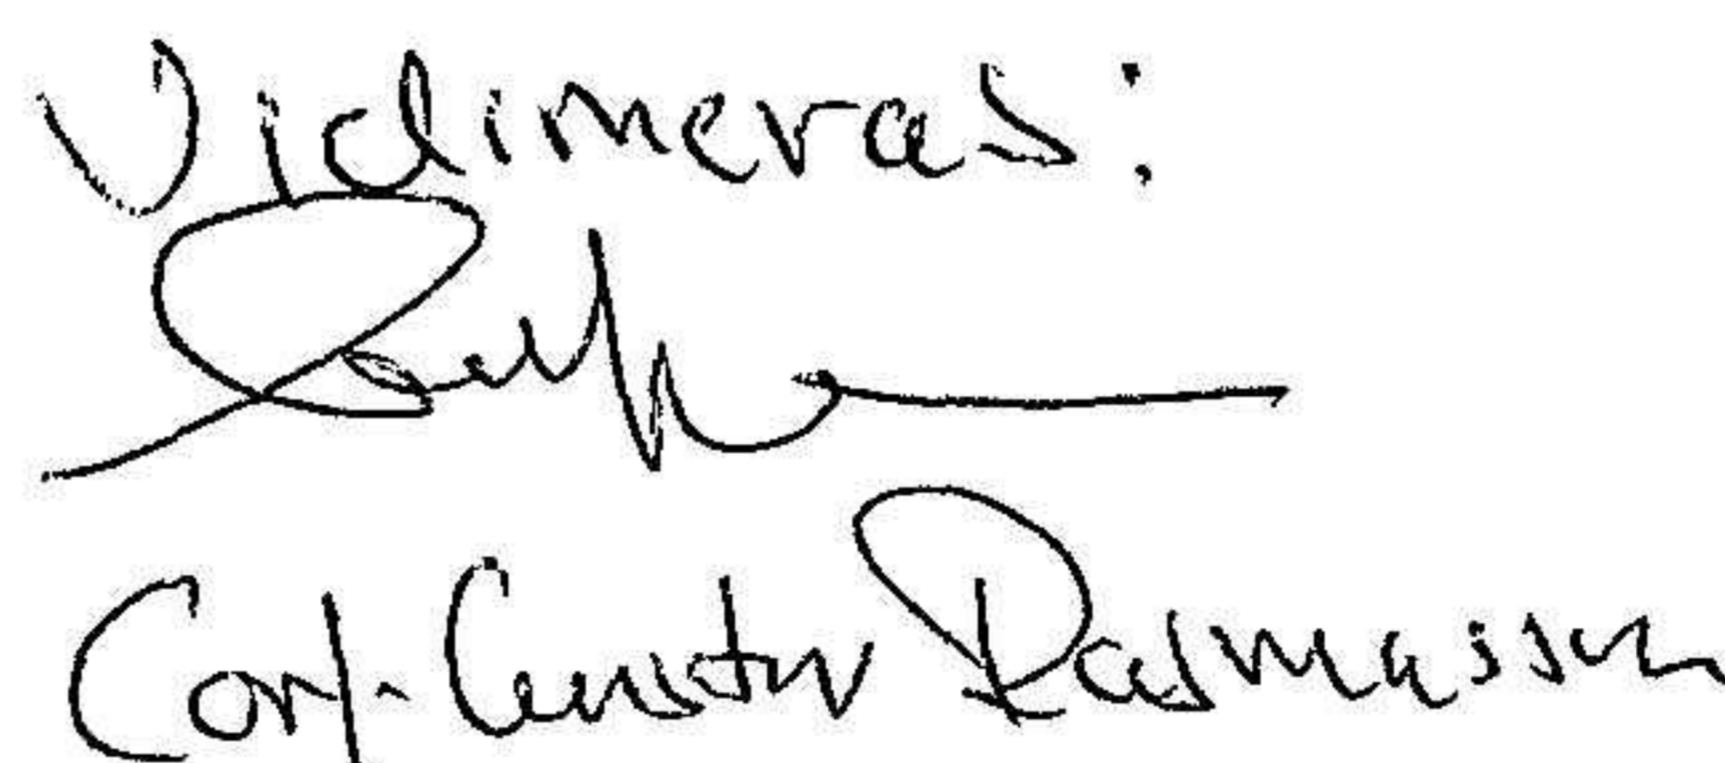 Vidimeras:
Carl-Gustav Rasmussen